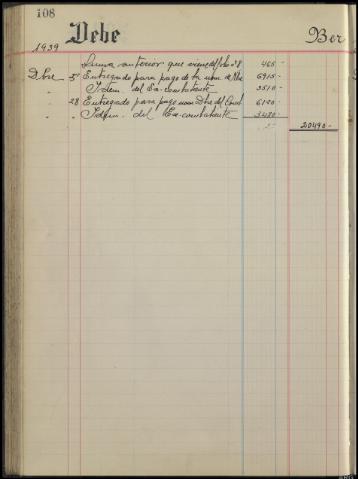 108
Debe
Ber
1939
Suma anterior que viene del folio 98 465-
Dbre 5 Entregado para pago de la nom de Nbe 6915-
" " Idem. del Ex-combatente 3510-
" 28 Entregado para pago nom Dbre del 6120-
" " Idem. del Ex-combatente 3480-
20490-